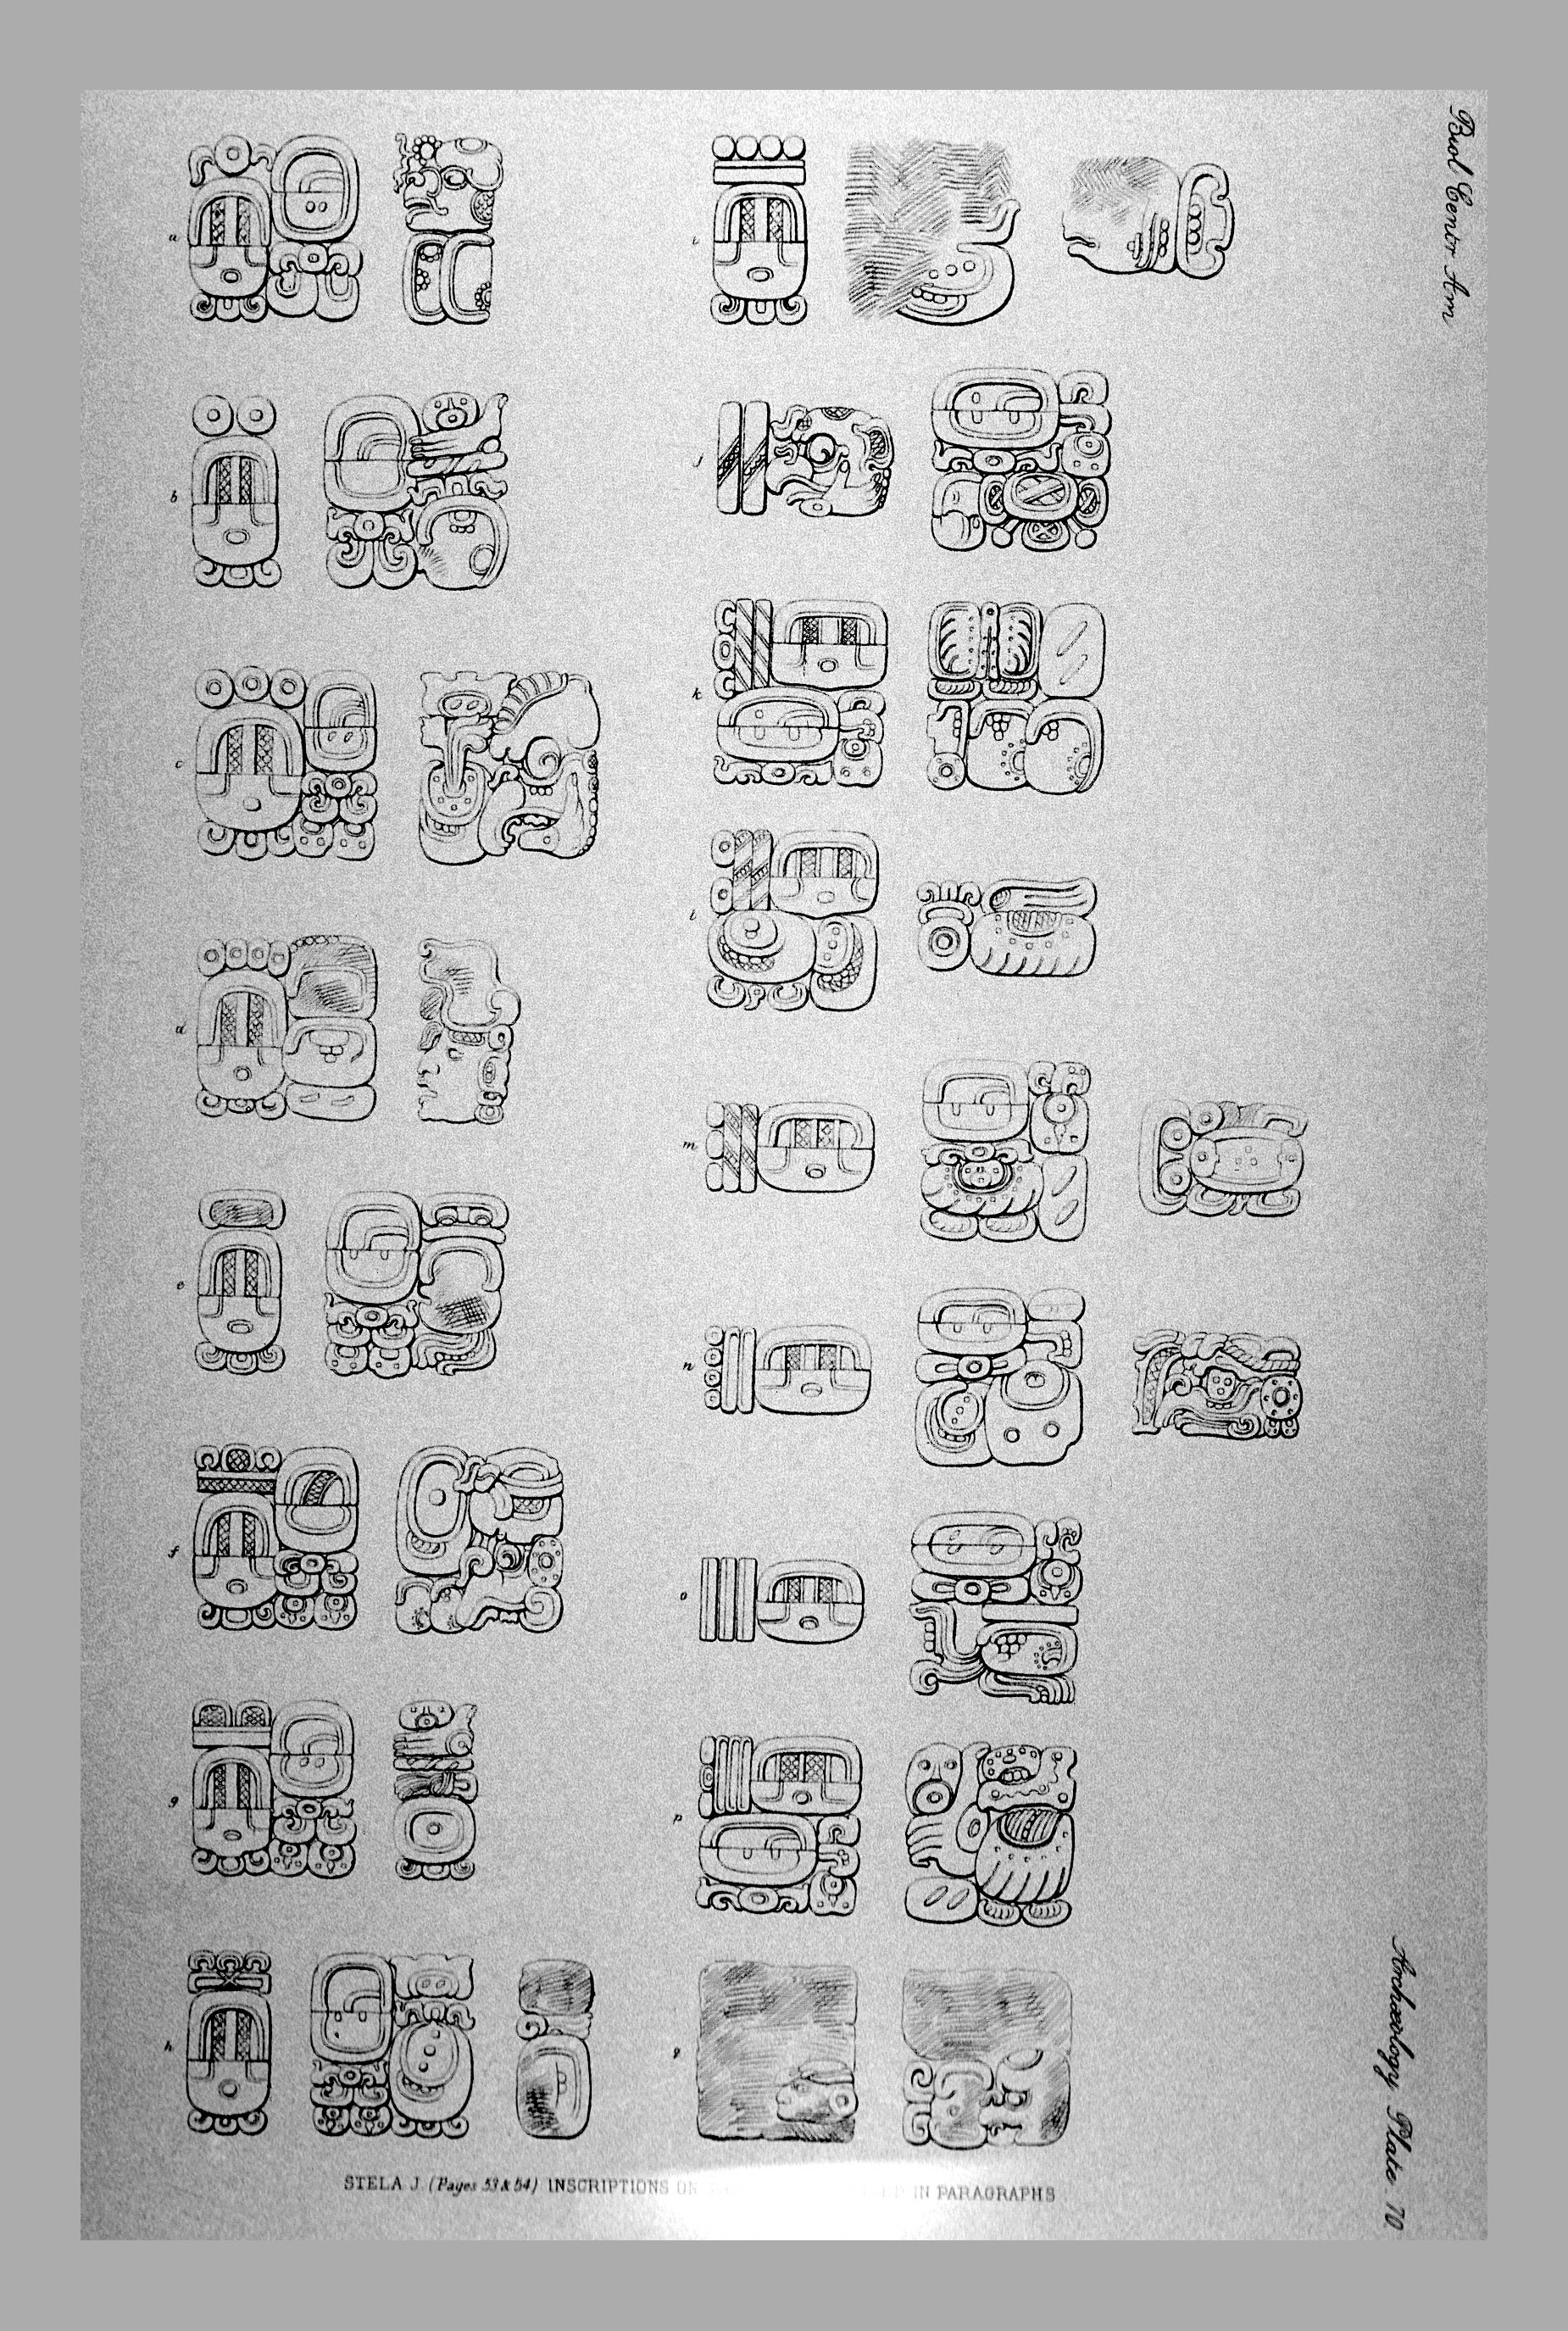 Biol. Centr. Am.
a
i
b
j
c
k
d
l
e
m
f
n
g
o
h
p
q
STELA J (Pages 53 & 54) INSCRIPTIONS ON IN PARAGRAPHS
Archæology Plate 70